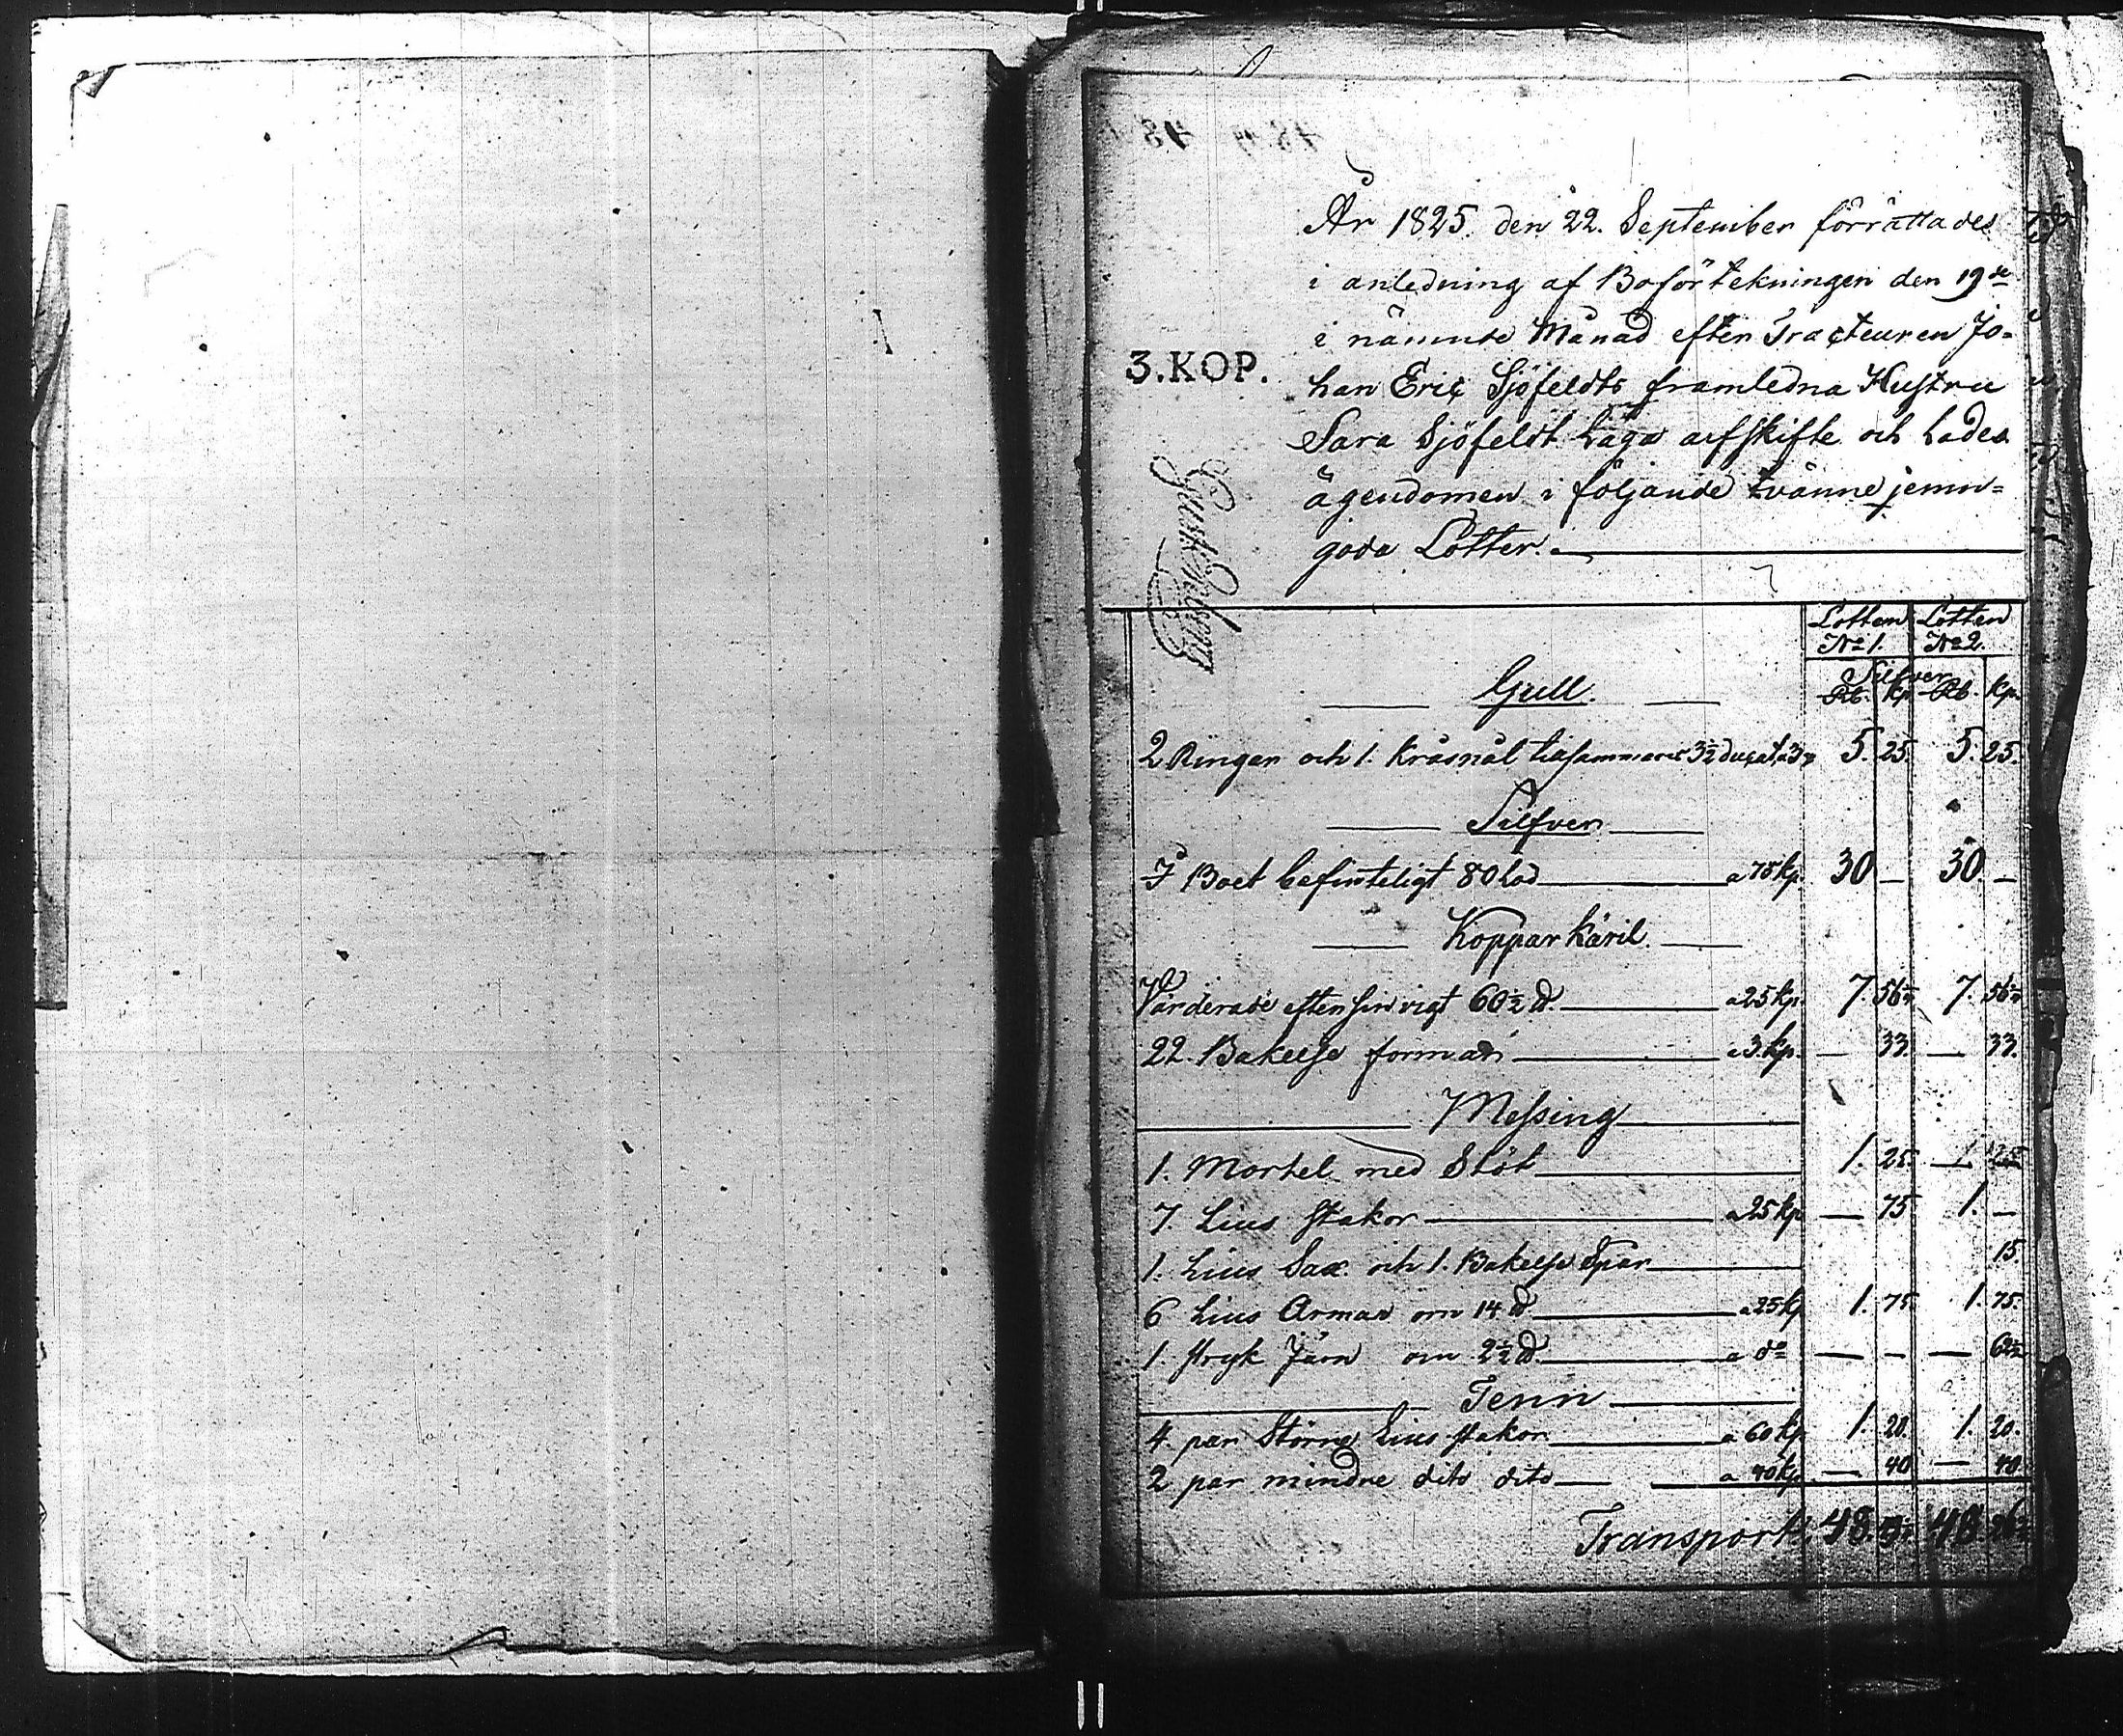 År 1825. den 22. September förrättades
i anledning af Boförtekningen den 19de
i nämnde Månad efter Tracteuren Jo-
3.KOP.
han Eric Sjöfeldts framledna Hustru
Sara Sjöfeldt Laga arfskifte och Lades
ägendomen i följande tvänne jemn-
goda Lotter.
Lotten Lotten
No 1. No 2.
Silfver
Rb. Kp. Rb. Kp.
Gull.
2 Ringar och 1. Kråsnål tilsammans 3½ ducat a 3 5. 25. 5. 25.
Silfver
I Boet befinteligt 80 Lod a 75 Kp. 30 — 30. —
Koppar Käril
Värderade efter sin vigt 60½ ℔. a 25 Kp. 7. 56¼ 7. 56¼
22. Bakelse formar a 3. Kp. — 33. — 33.
Messing
1. Mortel med Stöt 1. 25.
7. Lius stakor a 25 Kp — 75 1. —
1. Lius Sax och 1. Bakelse Spår 15.
6 Lius Armar om 14 ℔ a 25 Kp 1. 75. 1. 75.
1. stryk Järn om 2½ ℔. a do — — — 62½
Tenn
4. par Större Lius stakor a 60 Kp 1. 20. 1. 20.
2 par mindre dito dito a 40 Kp — 40 — 40.
Transport. 48. 48.